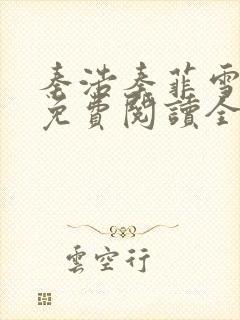 秦浩秦菲雪
免費閱讀全
雲空行